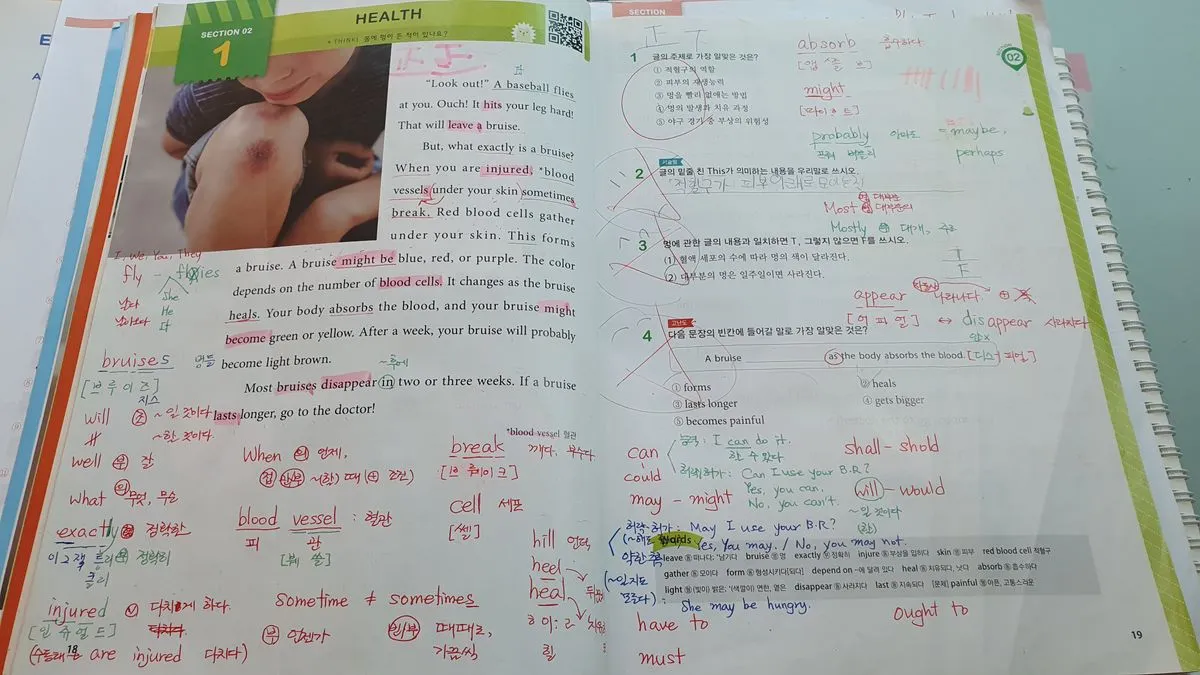 SECTION 02
1
HEALTH
THINK! 몸에 멍이 든 적이 있나요?
"Look out!" A baseball flies
at you. Ouch! It hits your leg hard!
That will leave a bruise.
But, what exactly is a bruise?
When you are injured, *blood
vessels under your skin sometimes
break. Red blood cells gather
under your skin. This forms
a bruise. A bruise might be blue, red, or purple. The color
depends on the number of blood cells. It changes as the bruise
heals. Your body absorbs the blood, and your bruise might
become green or yellow. After a week, your bruise will probably
become light brown.
Most bruises disappear in two or three weeks. If a bruise
lasts longer, go to the doctor!
*blood vessel 혈관
I, We, You, They
fly
She
He
It
~후에
bruises 멍들
[브루이즈]
지스
will ~일 것이다
~할 것이다
well 부 잘
what 의 무엇, 무슨
exactly
injured
[인쥬얼드]
are injured 다치다
When 의 언제,
blood vessel : 혈관
피 관
sometime ≠ sometimes
부 언젠가
때때로,
가끔씩
break 깨다, 부수다
[브뤠이크]
cell 세포
[쎌]
hill 언덕
heel
heal
힐
18
SECTION
02
1 글의 주제로 가장 알맞은 것은?
① 적혈구의 역할
② 피부의 재생능력
③ 멍을 빨리 없애는 방법
④ 멍의 발생과 치유 과정
⑤ 야구 경기 중 부상의 위험성
absorb 흡수하다
might
[마이트]
probably 아마도 = maybe,
perhaps
서술형
2 글의 밑줄 친 This가 의미하는 내용을 우리말로 쓰시오.
적혈구가 피부 아래로 모이는것
Most 대부분의
Mostly 대개, 주로
3 멍에 관한 글의 내용과 일치하면 T, 그렇지 않으면 F를 쓰시오.
(1) 혈액 세포의 수에 따라 멍의 색이 달라진다.
(2) 대부분의 멍은 일주일이면 사라진다.
T
F
appear 나타나다
[어피얼] ↔ disappear 사라지다
고난도
4 다음 문장의 빈칸에 들어갈 말로 가장 알맞은 것은?
A bruise as the body absorbs the blood.
① forms ② heals
③ lasts longer ④ gets bigger
⑤ becomes painful
can
could
능력 : I can do it.
할 수 있다
허락, 허가 : Can I use your B.R?
Yes, you can.
No, you can't.
shall - shold
may - might
will - would
~일 것이다
허락·허가 : May I use your B.R?
Yes, you may. / No, you may not.
Words
leave 동 떠나다; *남기다 bruise 명 멍 exactly 부 정확히 injure 동 부상을 입히다 skin 명 피부 red blood cell 적혈구
gather 동 모이다 form 동 형성시키다[되다] depend on ~에 달려 있다 heal 동 치유되다, 낫다 absorb 동 흡수하다
light 형 (빛이) 밝은; *(색깔이) 연한, 옅은 disappear 동 사라지다 last 동 지속되다 [문제] painful 형 아픈, 고통스러운
She may be hungry.
have to
must
ought to
19